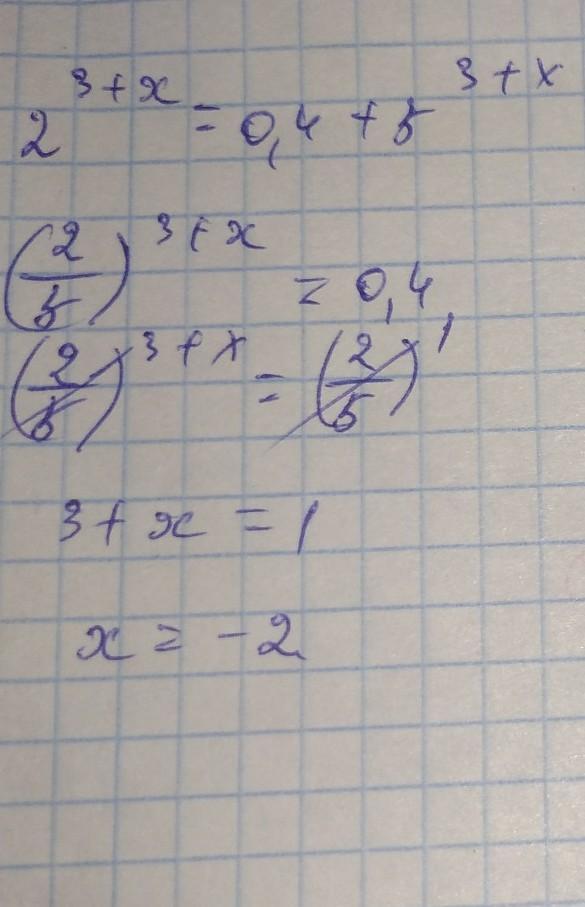 2^{3+x} = 0,4 + 5^{3+x}
(2/5)^{3+x} = 0,4
(2/5)^{3+x} = (2/5)^1
3+x = 1
x = -2